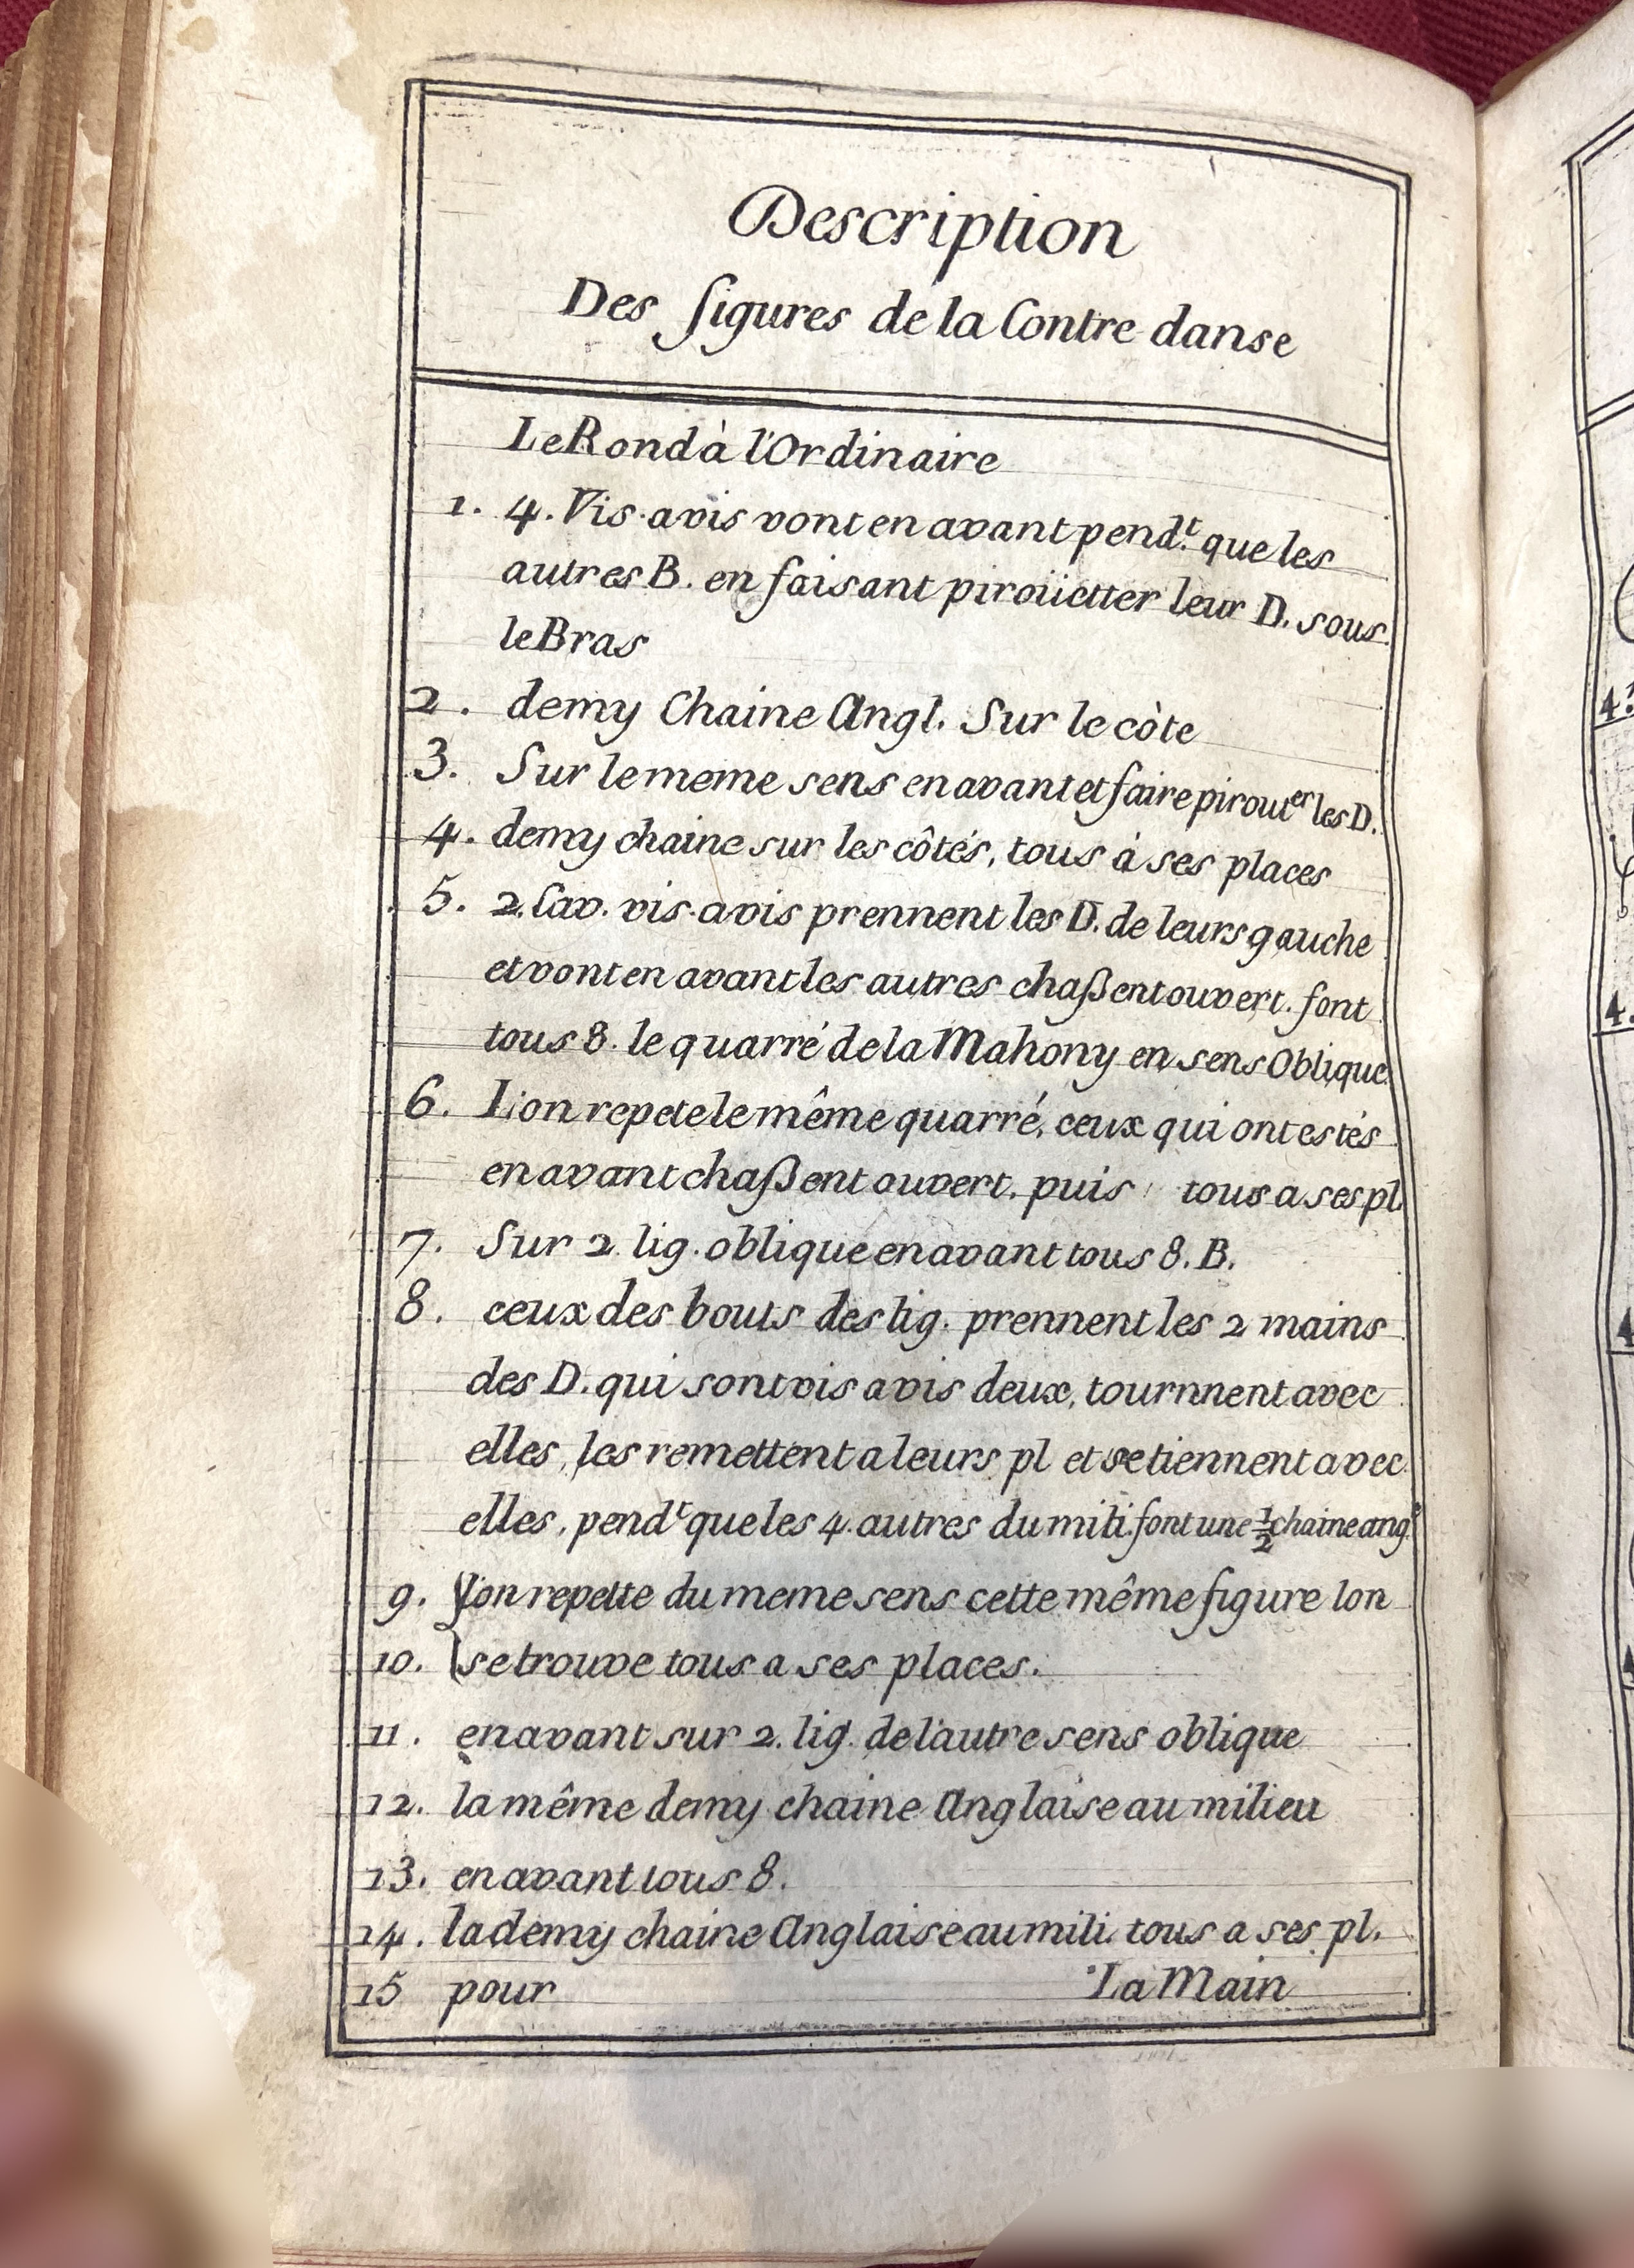 Description
Des figures de la Contre danse
Le Rond à l'Ordinaire
1. 4. Vis. avis vont en avant pend.t que les
autres B. en faisant piroüetter leur D. sous
le Bras
2. demy Chaine Angl. Sur le côte
3. Sur le meme sens en avant et faire pirouter les D.
4. demy chaine sur les côtés, tous à ses places
5. 2. Cav. vis. avis prennent les D. de leurs gauche
et vont en avant les autres chaßent ouvert. font
tous 8. le quarré de la Mahony en sens Oblique
6. L'on repete le même quarré, ceux qui ont estés
en avant chaßent ouvert. puis tous a ses pl.
7. Sur 2. lig. oblique en avant tous 8. B.
8. ceux des bouts des lig. prennent les 2 mains
des D. qui sont vis avis deux, tournnent avec
elles, les remettent a leurs pl et se tiennent avec
elles, pend.t que les 4. autres du mili. font une ½ chaine ang.
9. l'on repette du meme sens cette même figure lon
10. se trouve tous a ses places.
11. en avant sur 2. lig. de l'autre sens oblique
12. la même demy chaine Anglaise au milieu
13. en avant tous 8.
14. la demy chaine Anglaise au mili. tous a ses pl.
15 pour La Main
4.
4.
4